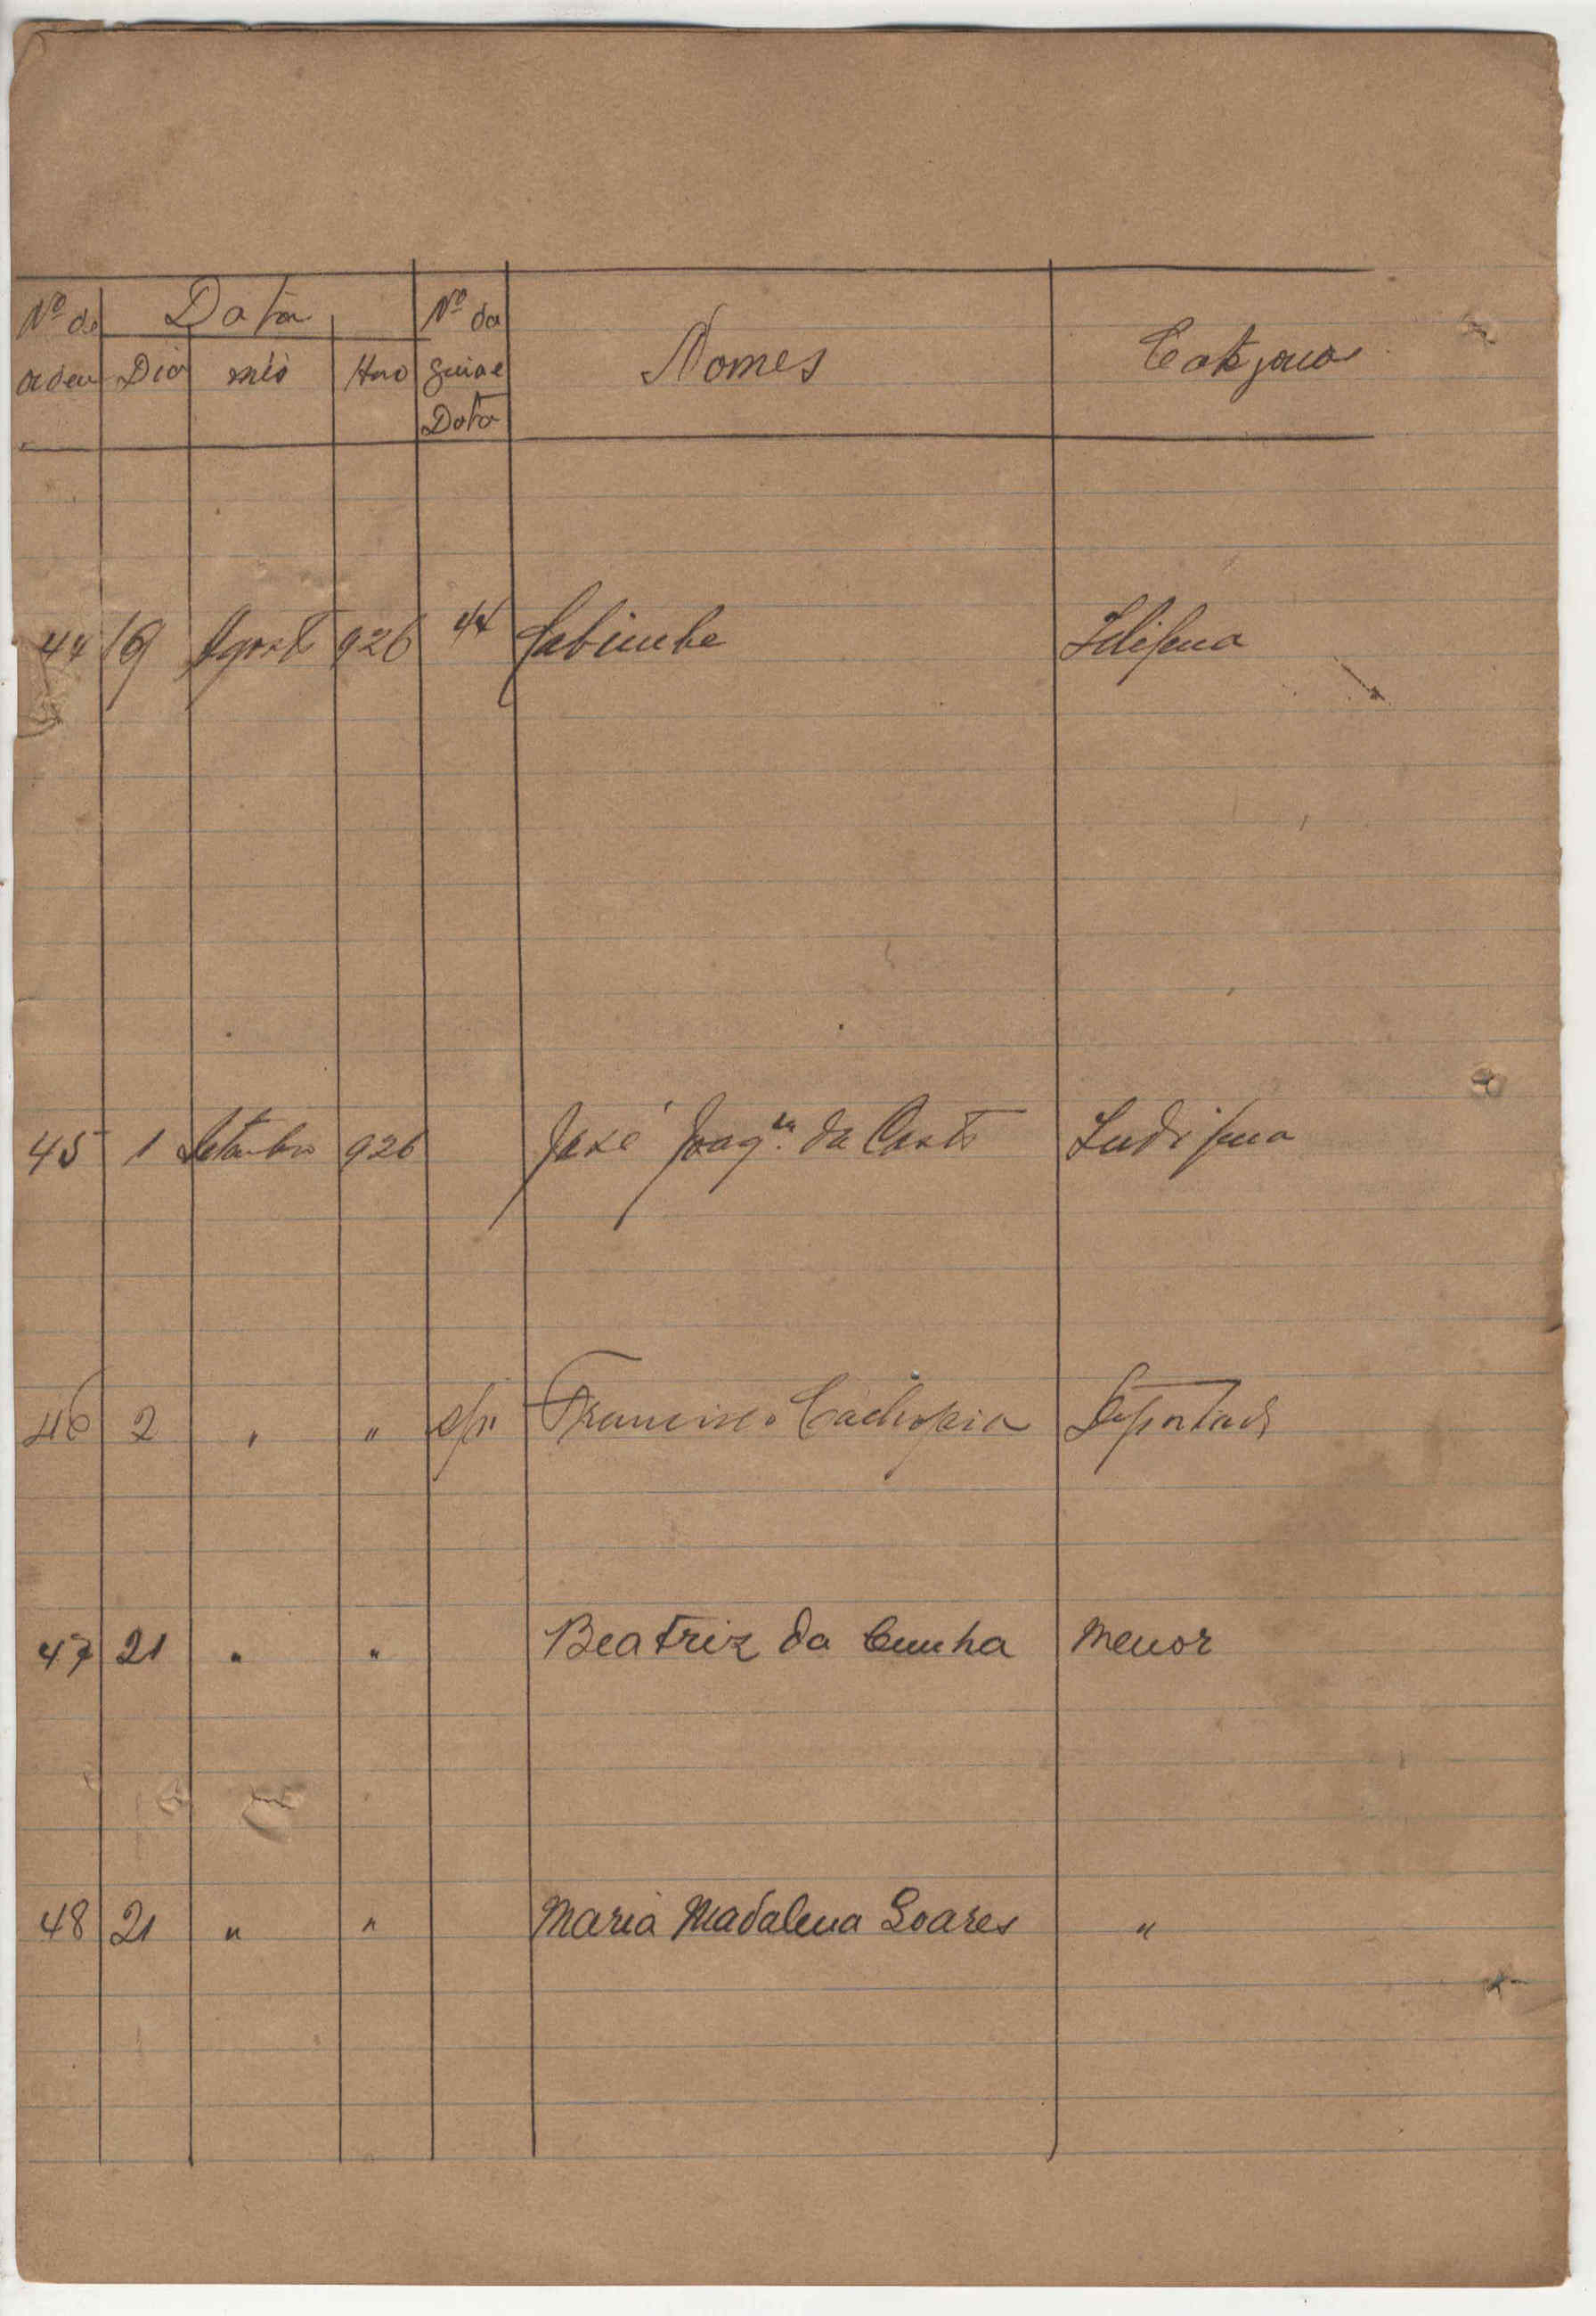 Nº de Data Nº da
ordem Dia mês Ano guia e Nomes Categorias
Data
44 19 Agosto 926 44
45 1 Setembro 926 José Joaqm. da Costa Indifena
46 2 " " Francisco Deportado
47 21 " " Beatriz da Cunha Menor
48 21 " " Maria Madalena Soares "